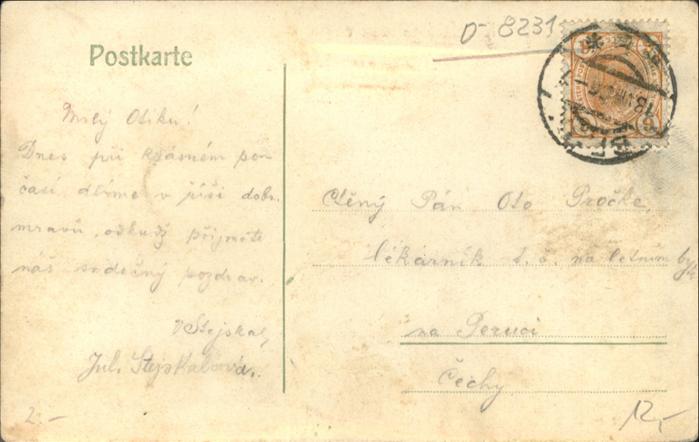 D-8231
Postkarte
Milý Otíku!
Dnes při krásném po-
časí dlíme v říši dobr.
mravů, odkudž přijměte
náš srdečný pozdrav.
VStejskal,
Jul. Stejskalová.
Ctěný Pán Oto Pročke,
lékárník t. č. na letním byt.
na Peruci
Čechy
2.-
12,-